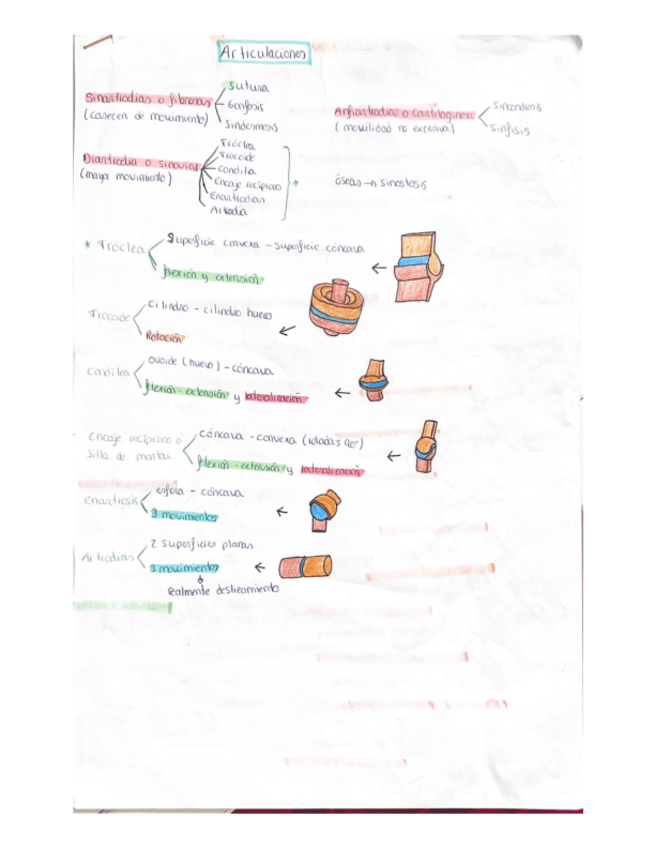 Articulaciones
Sinartrodias o fibrosas
(carecen de movimiento)
Sutura
Gonfosis
Sindesmosis
Anfiartrodia o cartilaginosa
(movilidad no excesiva)
Sincondrosis
Sínfisis
Diartrodia o sinovial
(mayor movimiento)
Tróclea
Trocoide
Condílea
Encaje recíproco
Enartrodias
Artrodia
*
óseas → sinostosis
* Tróclea
Superficie convexa - superficie cóncava
flexión y extensión
Trocoide
Cilindro - cilindro hueco
Rotación
Condílea
ovoide (huevo) - cóncava
flexión - extensión y lateralización
Encaje recíproco o
silla de montar
cóncava - convexa (rotadas 90°)
flexión - extensión y lateralización
Enartrosis
esfera - cóncava
3 movimientos
Artrodias
2 superficies planas
3 movimientos
Realmente deslizamiento